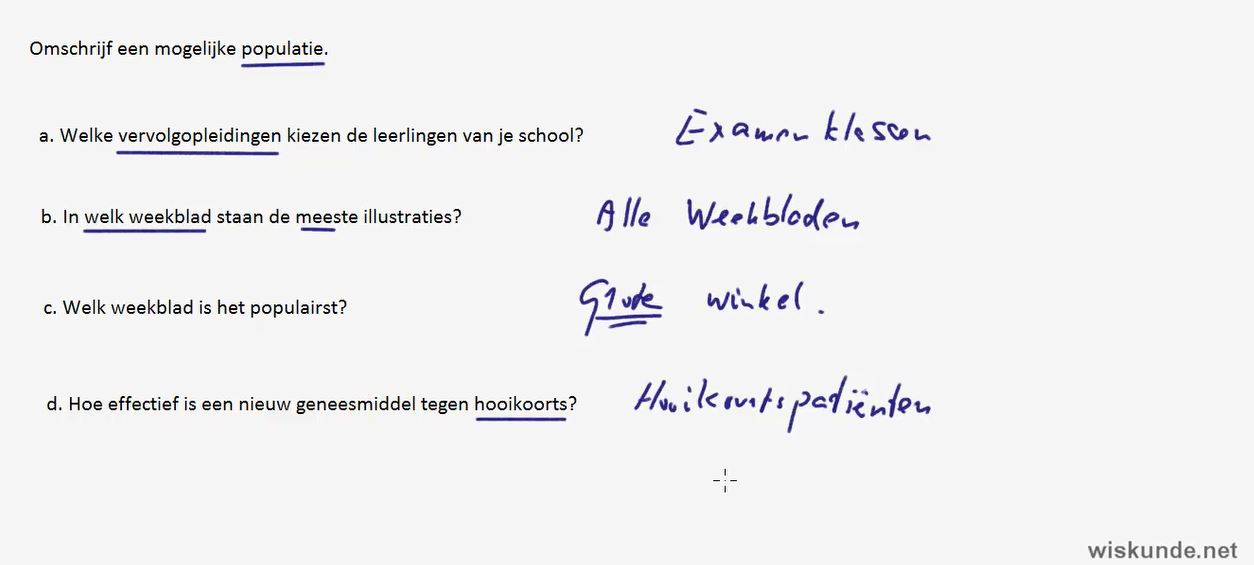 Omschrijf een mogelijke populatie.
a. Welke vervolgopleidingen kiezen de leerlingen van je school? Examen klassen
b. In welk weekblad staan de meeste illustraties? Alle Weekbladen
c. Welk weekblad is het populairst? Grote winkel.
d. Hoe effectief is een nieuw geneesmiddel tegen hooikoorts? Hooikoortspatiënten
wiskunde.net